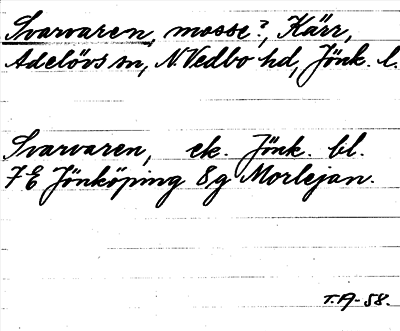 Svarvaren, mosse?, Kärr,
Adelövs sn, N. Vedbo hd, Jönk. l.
Svarvaren, ek. Jönk. bl.
7E Jönköping 8g Morlejan.
T.A-58.